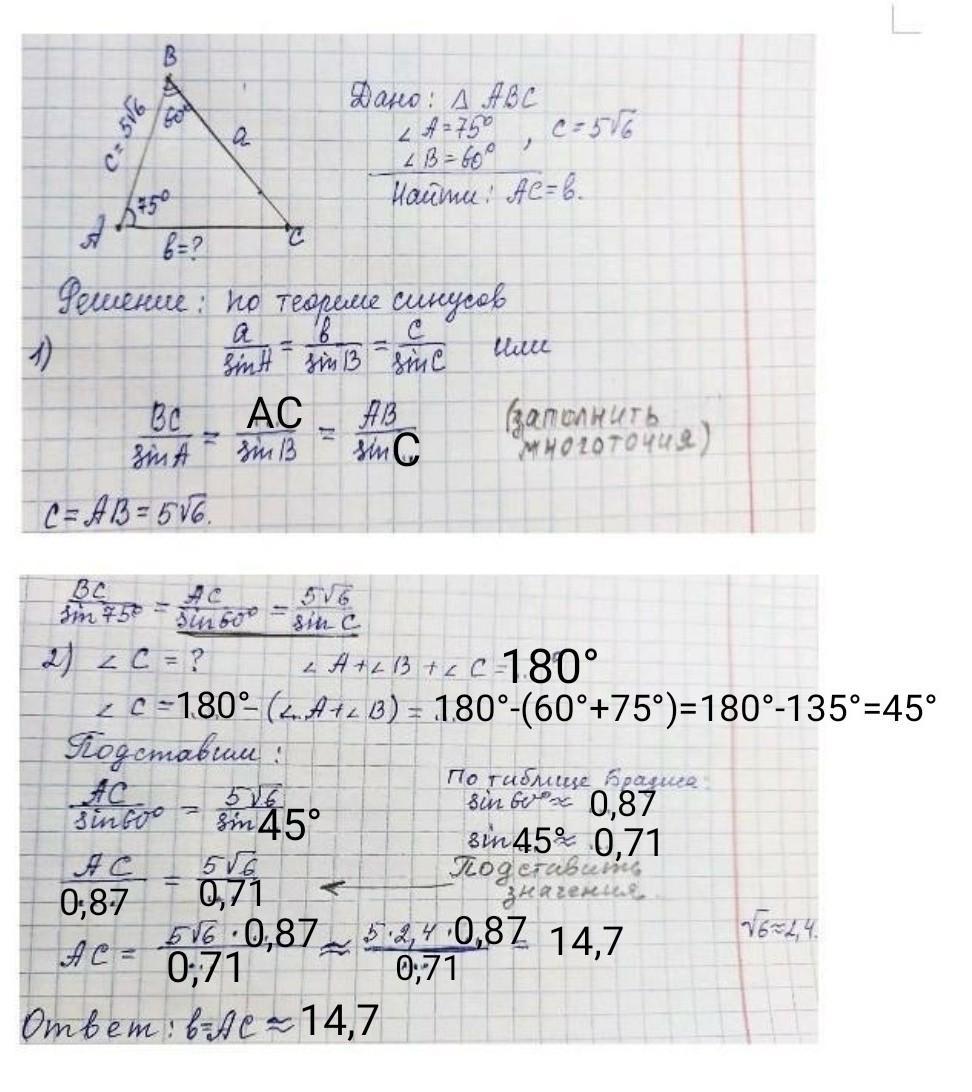 B
60°
c = 5√6
a
75°
A
C
в = ?
Дано: Δ ABC
∠ A = 75°, c = 5√6
∠ B = 60°
Найти: AC = в.
Решение: по теореме синусов
1) a/sin A = в/sin B = c/sin C или
BC/sin A = AC/sin B = AB/sin C (заполнить многоточия)
c = AB = 5√6.
BC/sin 75° = AC/sin 60° = 5√6/sin C
2) ∠ C = ? ∠ A + ∠ B + ∠ C = 180°
∠ C = 180° - (∠ A + ∠ B) = 180°-(60°+75°)=180°-135°=45°
Подставим:
По таблице Брадиса:
sin 60° ≈ 0,87
AC/sin 60° = 5√6/sin 45°
sin 45° ≈ 0,71
Подставить значения
AC/0,87 = 5√6/0,71
AC = 5√6 · 0,87/0,71 ≈ 5 · 2,4 · 0,87/0,71 = 14,7
√6 ≈ 2,4.
Ответ: в = AC ≈ 14,7